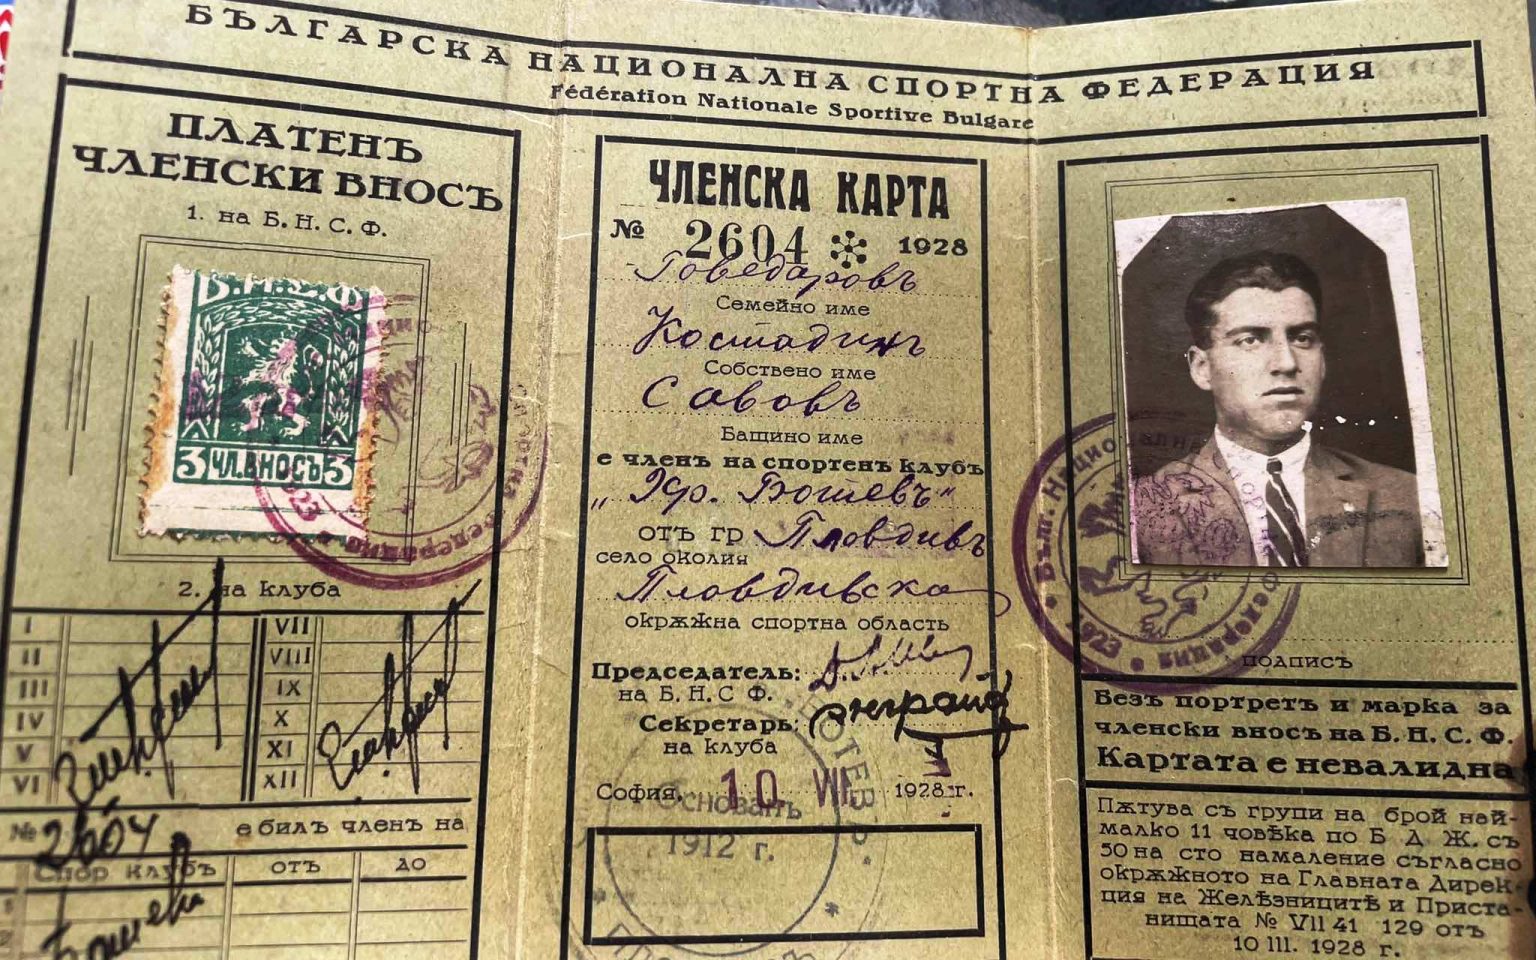 БЪЛГАРСКА НАЦИОНАЛНА СПОРТНА ФЕДЕРАЦИЯ
Fédération Nationale Sportive Bulgare
ПЛАТЕНЪ
ЧЛЕНСКИ ВНОСЪ
1. на Б. Н. С. Ф.
Б.Н.С.Ф
3 ЧЛ.ВНОСЪ 3
2. на клуба
I VII
II VIII
III IX
IV X
V XI
VI XII
№ 2604 е билъ членъ на
Спор клубъ отъ до
1
2
ЧЛЕНСКА КАРТА
№ 2604 1928
Говедаровъ
Семейно име
Костадинъ
Собствено име
Савовъ
Бащино име
е членъ на спортенъ клубъ
„Хр. Ботевъ“
отъ гр Пловдивъ
село околия
Пловдивска
окрѫжна спортна область
Председатель:
на Б. Н. С Ф.
Секретарь:
на клуба
София, 10. VII 1928 г.
БОТЕВЪ
Основанъ
1912 г.
Бълг. Национална Спортна Федерация 1923
подпись
Безъ портретъ и марка за
членски вносъ на Б. Н. С. Ф.
Картата е невалидна
Пѫтува съ групи на брой най-
малко 11 човѣка по Б Д Ж. съ
50 на сто намаление съгласно
окрѫжното на Главната Дирек-
ция на Желѣзницитѣ и Приста-
нищата № VII 41 129 отъ
10 III. 1928 г.